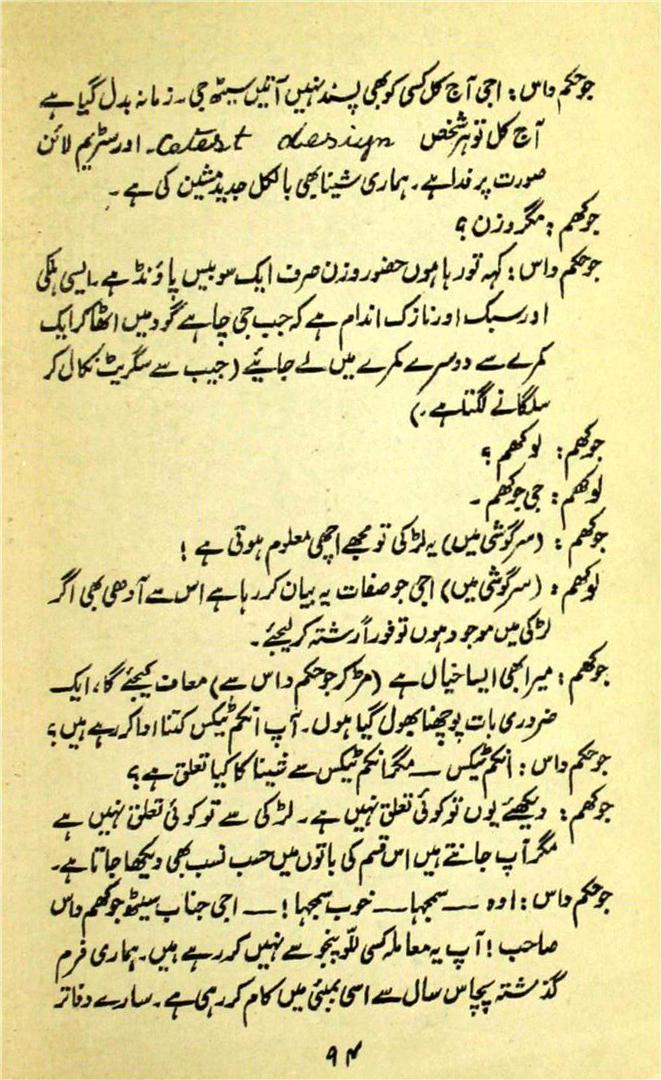 جوحکم داس: اجی آج کل کسی کو بھی پسند نہیں آتیں سیٹھ جی۔ زمانہ بدل گیا ہے
آج کل تو ہر شخص Latest design۔ اور سٹریم لائن
صورت پر فدا ہے۔ ہماری شینا بھی بالکل جدید مشین کی ہے۔
جوکھم: مگر وزن؟
جوحکم داس: کہہ تو رہا ہوں حضور وزن صرف ایک سو بیس پاؤنڈ ہے۔ ایسی ہلکی
اور سبک اور نازک اندام ہے کہ جب جی چاہے گود میں اٹھا کر ایک
کمرے سے دوسرے کمرے میں لے جائیے (جیب سے سگریٹ نکال کر
سلگانے لگتا ہے۔)
جوکھم: لوکھم؟
لوکھم: جی جوکھم۔
جوکھم: (سرگوشی میں) یہ لڑکی تو مجھے اچھی معلوم ہوتی ہے!
لوکھم: (سرگوشی میں) اجی جو صفات یہ بیان کر رہا ہے اس سے آدھی بھی اگر
لڑکی میں موجود ہوں تو فوراً رشتہ کر لیجئے۔
جوکھم: میرا بھی ایسا خیال ہے (مڑ کر جوحکم داس سے) معاف کیجئے گا، ایک
ضروری بات پوچھنا بھول گیا ہوں۔ آپ انکم ٹیکس کتنا ادا کر رہے ہیں؟
جوحکم داس: انکم ٹیکس — مگر انکم ٹیکس سے شینا کا کیا تعلق ہے؟
جوکھم: دیکھئے یوں تو کوئی تعلق نہیں ہے۔ لڑکی سے تو کوئی تعلق نہیں ہے
مگر آپ جانتے ہیں اس قسم کی باتوں میں حسب نسب بھی دیکھا جاتا ہے۔
جوحکم داس: اوہ — سمجھا — خوب سمجھا! — اجی جناب سیٹھ جوکھم داس
صاحب! آپ یہ معاملہ کسی للّو پنجو سے نہیں کر رہے ہیں۔ ہماری فرم
گذشتہ پچاس سال سے اسی بمبئی میں کام کر رہی ہے۔ سارے دفاتر
۹۴